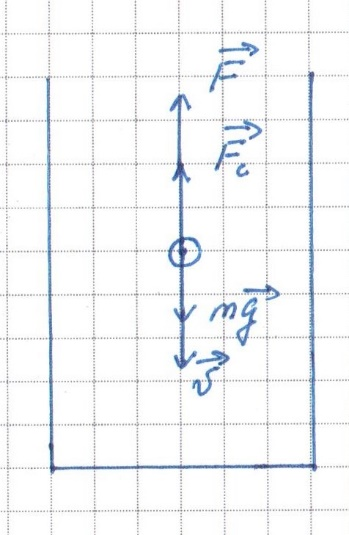 F⃗
F⃗c
mg⃗
v⃗